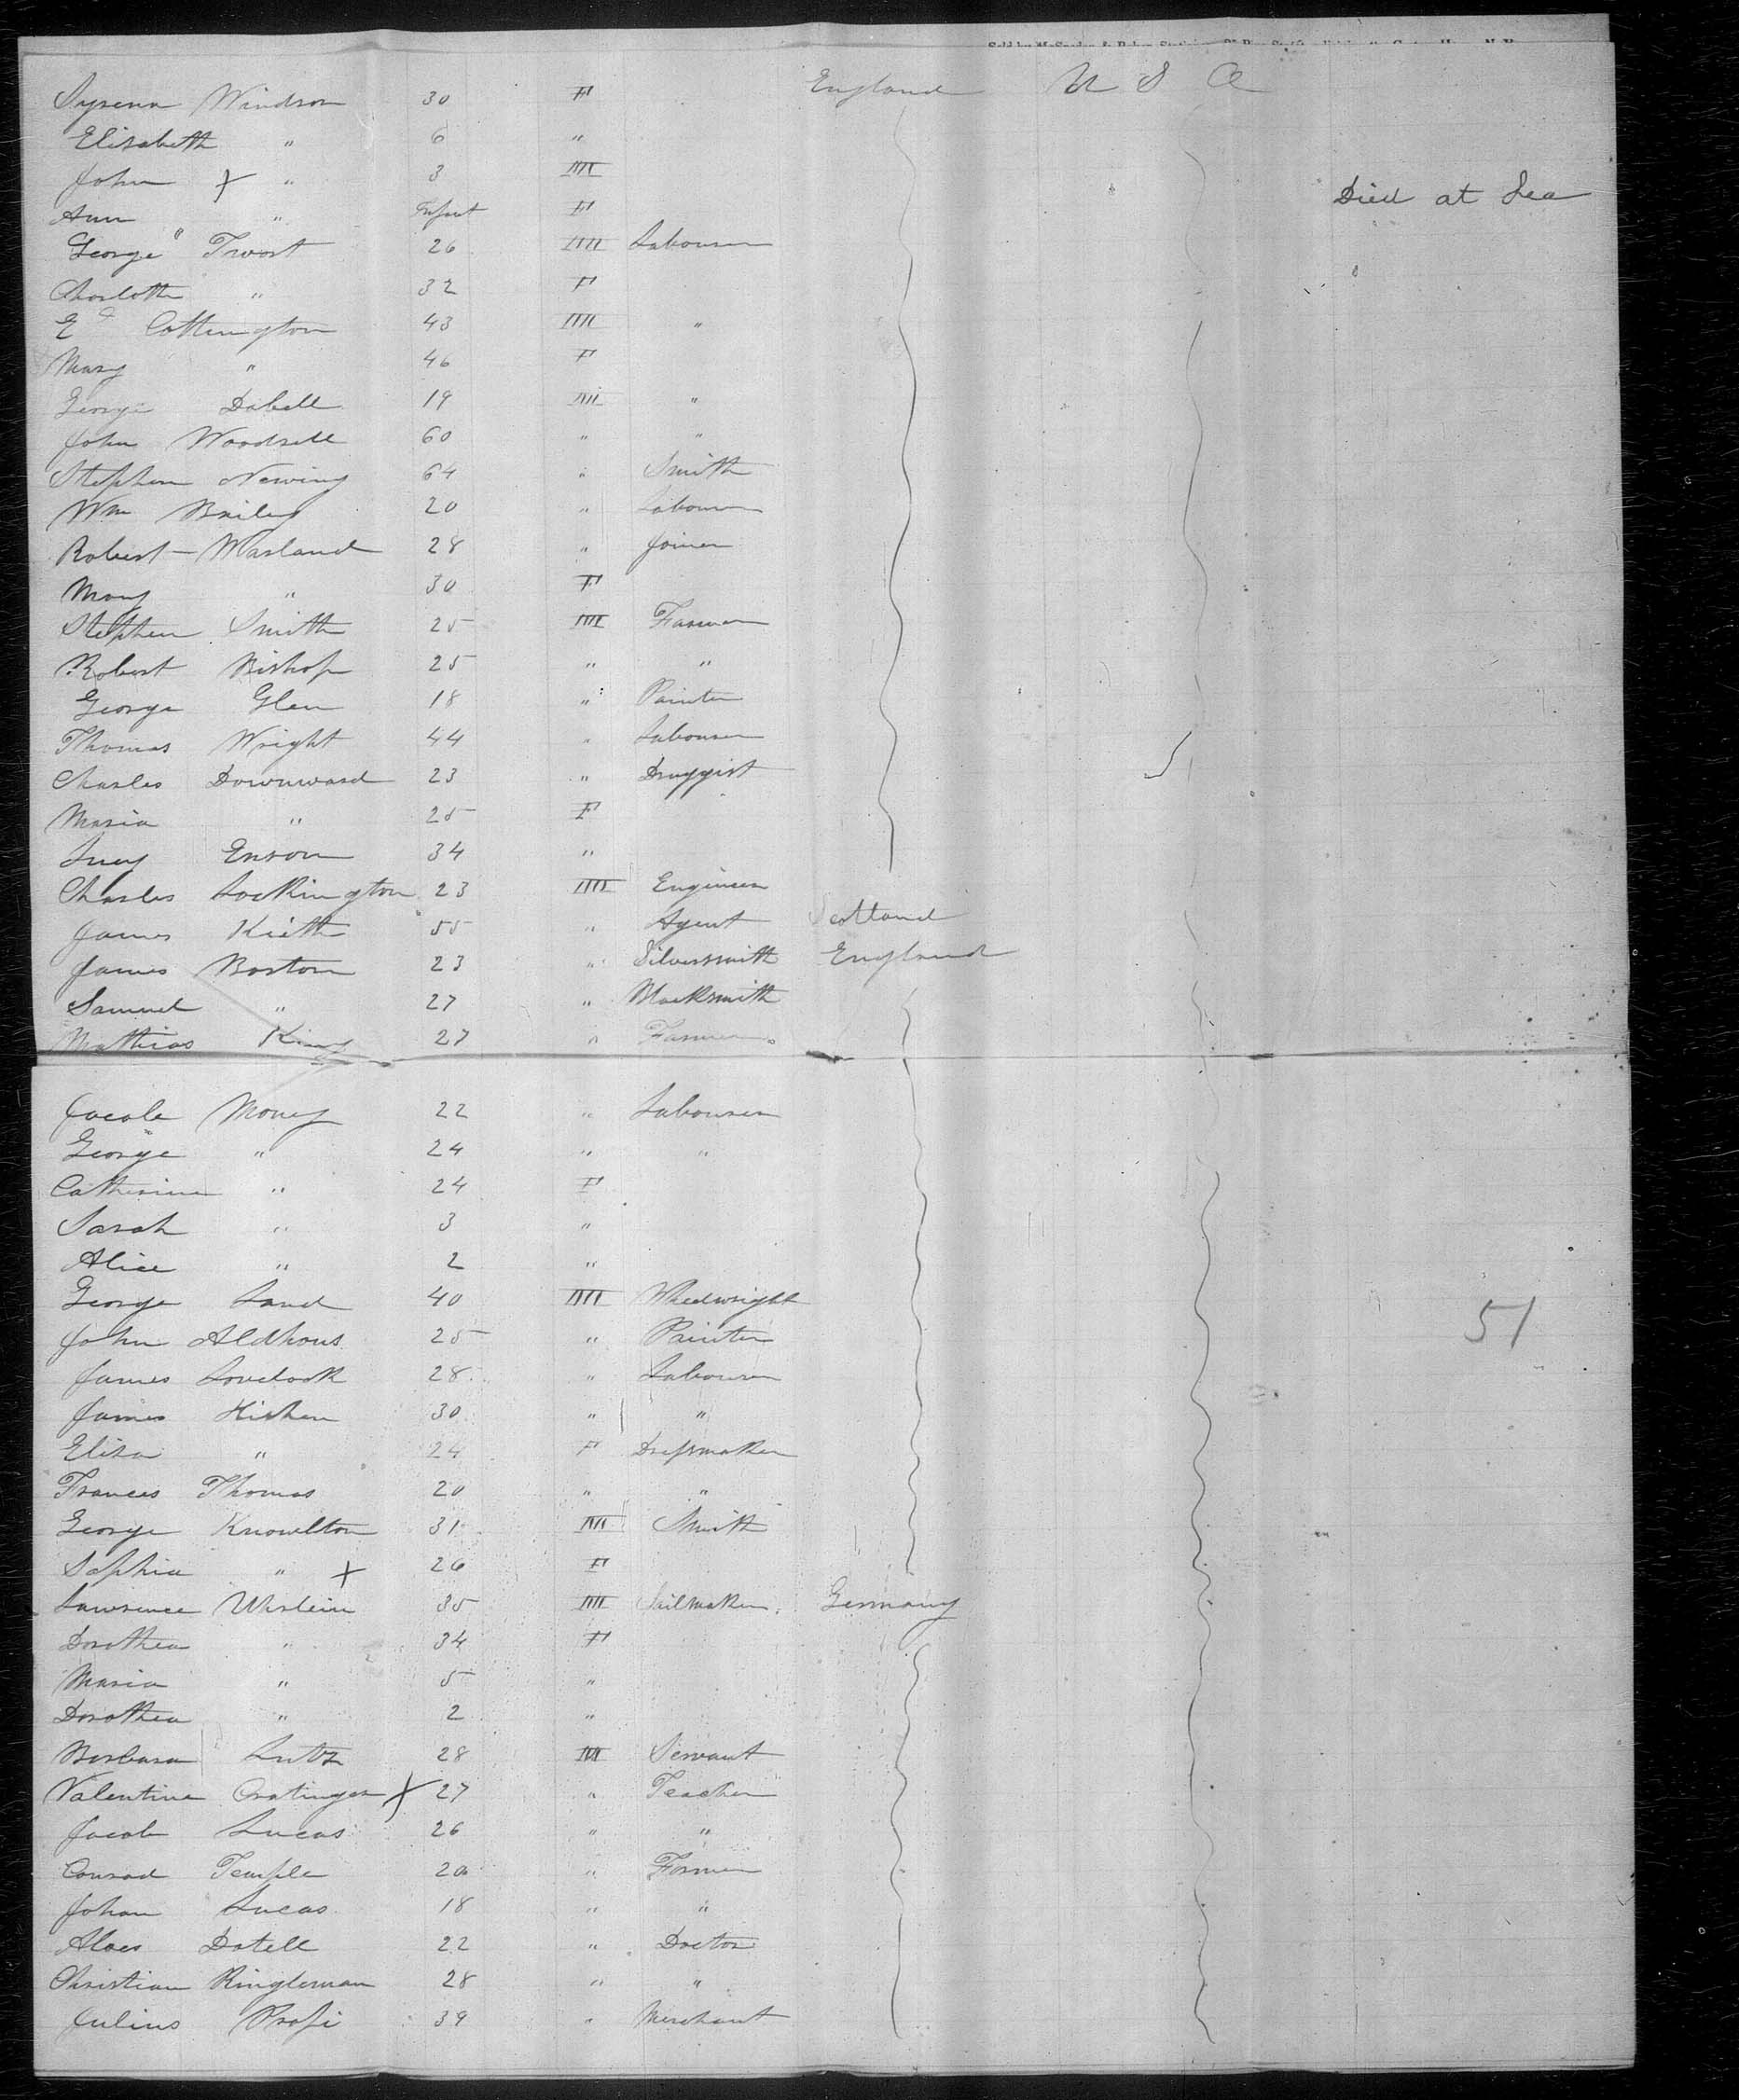 Syrena Windson 30 F England U S A
Elisabeth " 6 "
John X " 3 M
Ann " Infant F Died at Sea
George Twort 26 M Labourer
Charlotte " 32 F
Ed Cottington 43 M "
Mary " 46 F
George Dabell 19 M "
John Woodsell 60 " "
Stephen Newing 64 " Smith
Wm Bailey 20 " Labourer
Robert Marland 28 " Joiner
Mary " 30 F
Stephen Smith 25 M Farmer
Robert Bishop 25 " "
George Glen 18 " Painter
Thomas Wright 44 " Labourer
Charles Downward 23 " Druggist
Maria " 25 F
Lucy Enson 34 "
Charles Lockington 23 M Engineer
James Keith 55 " Agent Scotland
James Boston 23 " Silversmith England
Samuel " 27 " Blacksmith
Mathias King 27 " Farmer
Jacob Money 22 " Labourer
George " 24 " "
Catherine " 24 F
Sarah " 3 "
Alice " 2 "
George Land 40 M Wheelwright
John Aldhous 25 " Painter 51
James Lovelock 28 " Labourer
James Hishen 30 " "
Eliza " 24 F Dressmaker
Frances Thomas 20 " "
George Knowlton 31 M Smith
Sophia " X 26 F
Lawrence Uhrlein 35 M Sailmaker Germany
Dorothea " 34 F
Maria " 5 "
Dorothea " 2 "
Barbara Lutz 28 M Servant
Valentine Oratinger X 27 " Teacher
Jacob Lucas 26 " "
Conrad Temple 20 " Farmer
Johan Lucas 18 " "
Aloes Datell 22 " Doctor
Christian Ringleman 28 " "
Julius Profi 39 " Merchant